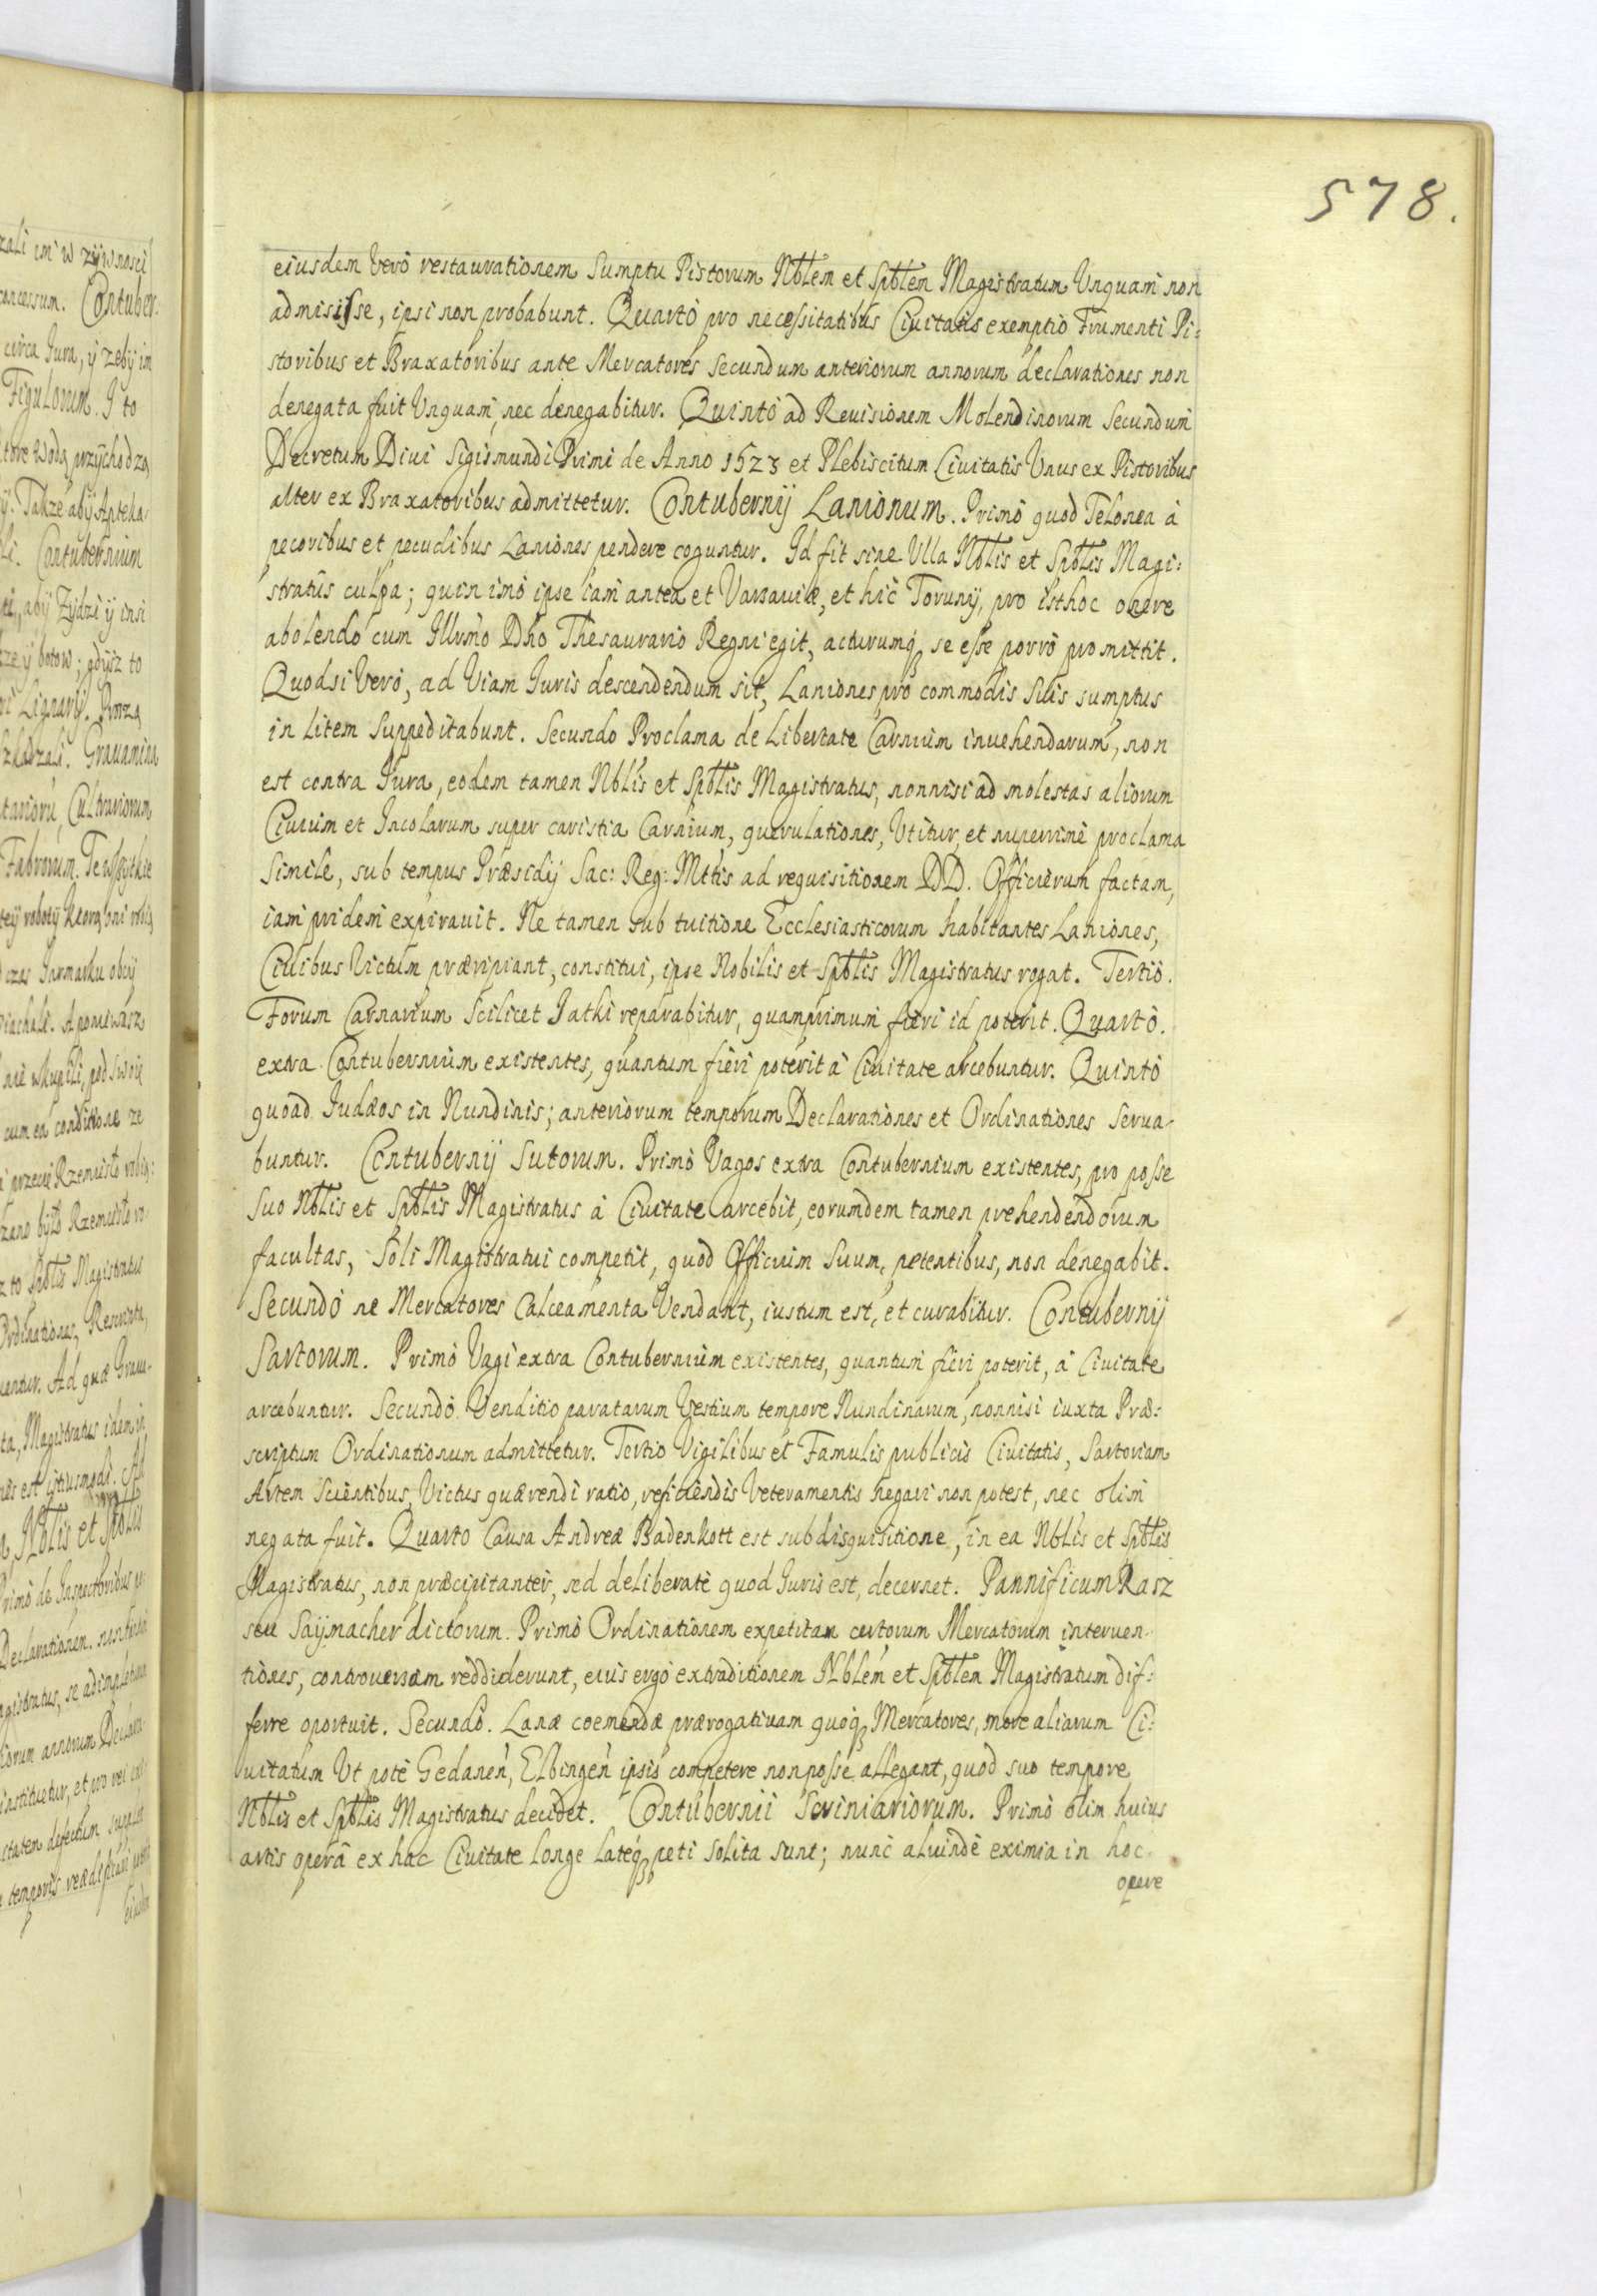 578.
eiusdem Verò restaurationem Sumptu Pistorum Nblem et Spblem Magistratum Unquam non
admisisse, ipsi non probabunt. Quartò pro necessitatibus Ciuitatis exemptio Frumenti Pi:
storibus et Braxatoribus ante Mercatores Secundum anteriorum annorum declarationes non
denegata fuit Unquam, nec denegabitur. Quintò ad Reuisionem Molendinorum Secundum
Decretum Diui Sigismundi Primi de Anno 1523 et Plebiscitum Ciuitatis Unus ex Pistoribus
alter ex Braxatoribus admittetur. Contubernij Lanionum. Primò quod Telonea à
pecoribus et pecudibus Laniones pendere coguntur. Id fit sine Ulla Nblis et Spblis Magi:
stratûs culpa; quin imò ipse iam antea et Varsauiæ, et hîc Torunij, pro isthoc onere
abolendo cum Illrmo Dno Thesaurario Regni egit, acturumq se esse porrò promittit.
Quodsi Verò, ad Viam Juris descendendum sit, Laniones pro commodis Suis sumptus
in Litem Suppeditabunt. Secundo Proclama de Libertate Carnium inuehendarum, non
est contra Jura, eodem tamen Nblis et Spblis Magistratus, nonnisi ad molestas aliorum
Ciuium et Incolarum super caristia Carnium, querulationes, Utitur, et nuperrimè proclama
Simile, sub tempus Præsidij Sac: Reg: Mttis ad requisitionem DD. Officierum factam,
iam pridem expirauit. Ne tamen sub tuitione Ecclesiasticorum habitantes Laniones,
Ciuibus Victum præripiant, constitui, ipse Nobilis et Spblis Magistratus rogat. Tertiò.
Forum Carnarium Scilicet Jatki reparabitur, quamprimum fieri id poterit. Quartò.
extra Contubernium existentes, quantum fieri poterit à Ciuitate arcebuntur. Quintò
quoad Judæos in Nundinis; anteriorum temporum Declarationes et Ordinationes Serua-
buntur. Contubernij Sutorum. Primò Vagos extra Contubernium existentes, pro posse
Suo Nblis et Spblis Magistratus à Ciuitate arcebit, eorundem tamen prehendendorum
facultas, Soli Magistratui competit, quod Officium Suum, petentibus, non denegabit.
Secundò ne Mercatores Calceamenta Vendant, iustum est, et curabitur. Contubernij
Sartorum. Primò Vagi extra Contubernium existentes, quantum fieri poterit, à Ciuitate
arcebuntur. Secundò Venditio paratarum Vestium tempore Nundinarum, nonnisi iuxta Præ:
scriptum Ordinationum admittetur. Tertio Vigilibus et Famulis publicis Ciuitatis, Sartoriam
Artem Scientibus, Victus quærendi ratio, reficiendis Veteramentis negari non potest, nec olim
negata fuit. Quarto Causa Andreæ Badenkott est sub disquisitione, in ea Nblis et Spblis
Magistratus, non præcipitanter, sed deliberatè quod Juris est, decernet. Pannificum Rasz
seu Saymacher dictorum. Primò Ordinationem expetitam certorum Mercatorum interuen-
tiones, controuersam reddiderunt, eius ergò extraditionem Nblem et Spblem Magistratum dif:
ferre oportuit. Secundò. Lanæ coemendæ prærogatiuam quoq Mercatores, more aliarum Ci:
uitatum Ut potè Gedanen, Elbingen ipsis competere non posse allegant, quod suo tempore
Nblis et Spblis Magistratus decidet. Contubernii Scriniariorum. Primò olim huius
artis opera ex hac Ciuitate Longe Lateq peti Solita Sunt; nunc aliundè eximia in hoc
opere